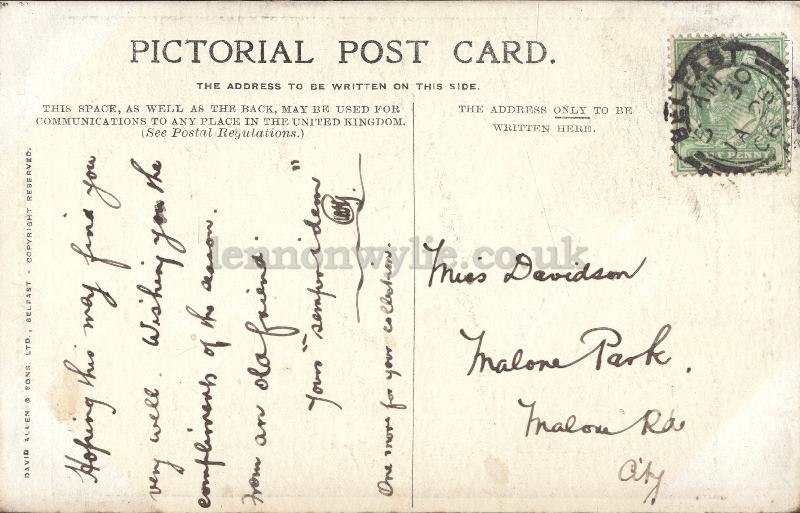 PICTORIAL POST CARD.
THE ADDRESS TO BE WRITTEN ON THIS SIDE.
THIS SPACE, AS WELL AS THE BACK, MAY BE USED FOR
COMMUNICATIONS TO ANY PLACE IN THE UNITED KINGDOM.
(See Postal Regulations.)
THE ADDRESS ONLY TO BE
WRITTEN HERE.
DAVID ALLEN & SONS, LTD., BELFAST - COPYRIGHT RESERVED.
Hoping this may find you
very well. Wishing you the
compliments of the season.
from an old friend.
Yours "semper idem"
One more for your collection.
Miss Davidson
Malone Park.
Malone Rd
City
BELFAST
5 30 AM
JA 25
06
PENNY
lennonwylie.co.uk